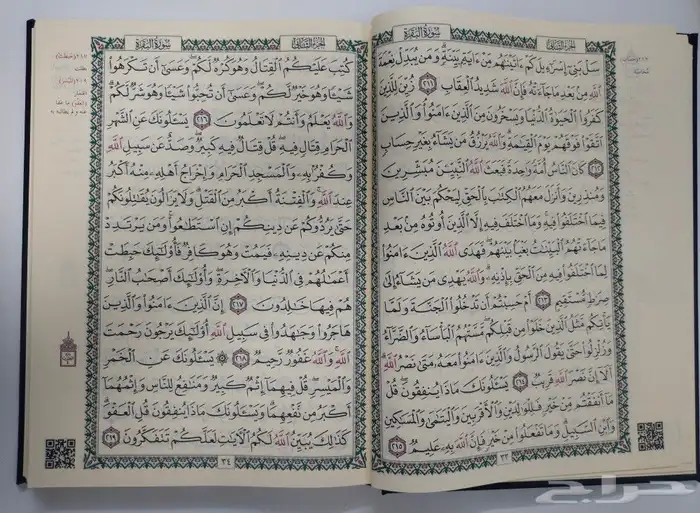 سورة البقرة
الجزء الثاني
سَلْ بَنِي إِسْرَٰٓءِيلَ كَمْ ءَاتَيْنَٰهُم مِّنْ ءَايَةٍۭ بَيِّنَةٍۗ وَمَن يُبَدِّلْ نِعْمَةَ
ٱللَّهِ مِنۢ بَعْدِ مَا جَآءَتْهُ فَإِنَّ ٱللَّهَ شَدِيدُ ٱلْعِقَابِ ٢١١ زُيِّنَ لِلَّذِينَ
كَفَرُوا۟ ٱلْحَيَوٰةُ ٱلدُّنْيَا وَيَسْخَرُونَ مِنَ ٱلَّذِينَ ءَامَنُوا۟ۘ وَٱلَّذِينَ
ٱتَّقَوْا۟ فَوْقَهُمْ يَوْمَ ٱلْقِيَٰمَةِۗ وَٱللَّهُ يَرْزُقُ مَن يَشَآءُ بِغَيْرِ حِسَابٍ
٢١٢ كَانَ ٱلنَّاسُ أُمَّةً وَٰحِدَةً فَبَعَثَ ٱللَّهُ ٱلنَّبِيِّـۧنَ مُبَشِّرِينَ
وَمُنذِرِينَ وَأَنزَلَ مَعَهُمُ ٱلْكِتَٰبَ بِٱلْحَقِّ لِيَحْكُمَ بَيْنَ ٱلنَّاسِ
فِيمَا ٱخْتَلَفُوا۟ فِيهِۚ وَمَا ٱخْتَلَفَ فِيهِ إِلَّا ٱلَّذِينَ أُوتُوهُ مِنۢ بَعْدِ
مَا جَآءَتْهُمُ ٱلْبَيِّنَٰتُ بَغْيًۢا بَيْنَهُمْۖ فَهَدَى ٱللَّهُ ٱلَّذِينَ ءَامَنُوا۟
لِمَا ٱخْتَلَفُوا۟ فِيهِ مِنَ ٱلْحَقِّ بِإِذْنِهِۦۗ وَٱللَّهُ يَهْدِى مَن يَشَآءُ إِلَىٰ
صِرَٰطٍ مُّسْتَقِيمٍ ٢١٣ أَمْ حَسِبْتُمْ أَن تَدْخُلُوا۟ ٱلْجَنَّةَ وَلَمَّا
يَأْتِكُم مَّثَلُ ٱلَّذِينَ خَلَوْا۟ مِن قَبْلِكُمۖ مَّسَّتْهُمُ ٱلْبَأْسَآءُ وَٱلضَّرَّآءُ
وَزُلْزِلُوا۟ حَتَّىٰ يَقُولَ ٱلرَّسُولُ وَٱلَّذِينَ ءَامَنُوا۟ مَعَهُۥ مَتَىٰ نَصْرُ ٱللَّهِۗ
أَلَآ إِنَّ نَصْرَ ٱللَّهِ قَرِيبٌ ٢١٤ يَسْـَٔلُونَكَ مَاذَا يُنفِقُونَۖ قُلْ
مَآ أَنفَقْتُم مِّنْ خَيْرٍ فَلِلْوَٰلِدَيْنِ وَٱلْأَقْرَبِينَ وَٱلْيَتَٰمَىٰ وَٱلْمَسَٰكِينِ
وَٱبْنِ ٱلسَّبِيلِۗ وَمَا تَفْعَلُوا۟ مِنْ خَيْرٍ فَإِنَّ ٱللَّهَ بِهِۦ عَلِيمٌ ٢١٥
٣٣
سورة البقرة
الجزء الثاني
كُتِبَ عَلَيْكُمُ ٱلْقِتَالُ وَهُوَ كُرْهٌ لَّكُمْۖ وَعَسَىٰٓ أَن تَكْرَهُوا۟
شَيْـًٔا وَهُوَ خَيْرٌ لَّكُمْۖ وَعَسَىٰٓ أَن تُحِبُّوا۟ شَيْـًٔا وَهُوَ شَرٌّ لَّكُمْۗ
وَٱللَّهُ يَعْلَمُ وَأَنتُمْ لَا تَعْلَمُونَ ٢١٦ يَسْـَٔلُونَكَ عَنِ ٱلشَّهْرِ
ٱلْحَرَامِ قِتَالٍ فِيهِۖ قُلْ قِتَالٌ فِيهِ كَبِيرٌۖ وَصَدٌّ عَن سَبِيلِ ٱللَّهِ
وَكُفْرٌۢ بِهِۦ وَٱلْمَسْجِدِ ٱلْحَرَامِ وَإِخْرَاجُ أَهْلِهِۦ مِنْهُ أَكْبَرُ
عِندَ ٱللَّهِۚ وَٱلْفِتْنَةُ أَكْبَرُ مِنَ ٱلْقَتْلِۗ وَلَا يَزَالُونَ يُقَٰتِلُونَكُمْ
حَتَّىٰ يَرُدُّوكُمْ عَن دِينِكُمْ إِنِ ٱسْتَطَٰعُوا۟ۚ وَمَن يَرْتَدِدْ
مِنكُمْ عَن دِينِهِۦ فَيَمُتْ وَهُوَ كَافِرٌ فَأُو۟لَٰٓئِكَ حَبِطَتْ
أَعْمَٰلُهُمْ فِى ٱلدُّنْيَا وَٱلْـَٔاخِرَةِۖ وَأُو۟لَٰٓئِكَ أَصْحَٰبُ ٱلنَّارِۖ
هُمْ فِيهَا خَٰلِدُونَ ٢١٧ إِنَّ ٱلَّذِينَ ءَامَنُوا۟ وَٱلَّذِينَ
هَاجَرُوا۟ وَجَٰهَدُوا۟ فِى سَبِيلِ ٱللَّهِ أُو۟لَٰٓئِكَ يَرْجُونَ رَحْمَتَ
ٱللَّهِۚ وَٱللَّهُ غَفُورٌ رَّحِيمٌ ٢١٨ ۞ يَسْـَٔلُونَكَ عَنِ ٱلْخَمْرِ
وَٱلْمَيْسِرِۖ قُلْ فِيهِمَآ إِثْمٌ كَبِيرٌ وَمَنَٰفِعُ لِلنَّاسِ وَإِثْمُهُمَآ
أَكْبَرُ مِن نَّفْعِهِمَاۗ وَيَسْـَٔلُونَكَ مَاذَا يُنفِقُونَ قُلِ ٱلْعَفْوَۗ
كَذَٰلِكَ يُبَيِّنُ ٱللَّهُ لَكُمُ ٱلْـَٔايَٰتِ لَعَلَّكُمْ تَتَفَكَّرُونَ ٢١٩
٣٤
حراج